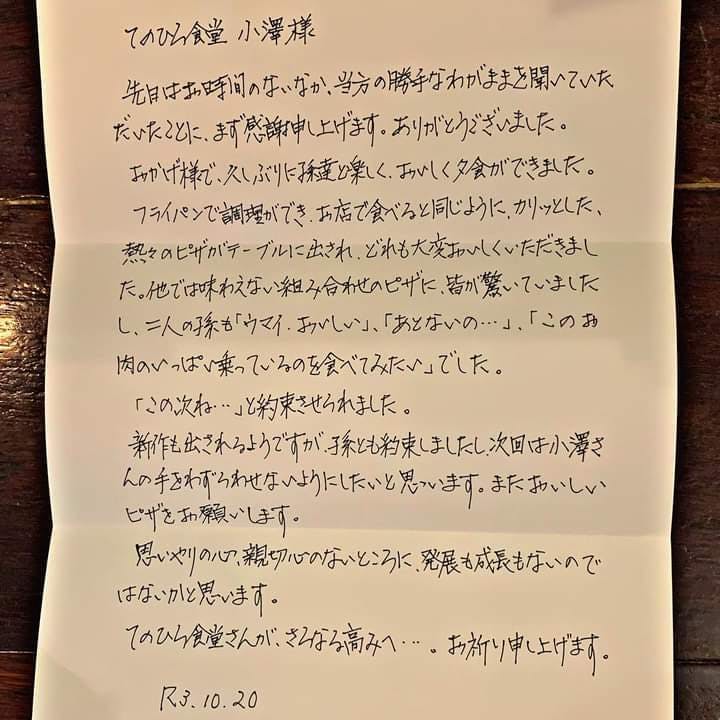 てのひら食堂 小澤様
先日はお時間のないなか、当方の勝手なわがままを聞いていた
だいたことに、まず感謝申し上げます。ありがとうございました。
おかげ様で、久しぶりに孫達と楽しく、おいしく夕食ができました。
フライパンで調理ができ、お店で食べると同じように、カリッとした、
熱々のピザがテーブルに出され、どれも大変おいしくいただきまし
た。他では味わえない組み合わせのピザに、皆が驚いていました
し、二人の孫も「ウマイ.おいしい」、「あとないの…」、「このお
肉のいっぱい乗っているのを食べてみたい」でした。
「この次ね…」と約束させられました。
新作も出されるようですが、孫とも約束しましたし、次回は小澤さ
んの手をわずらわせないようにしたいと思っいます。またおいしい
ピザをお願いします。
思いやりの心、親切心のないところに、発展も成長もないので
はないかと思います。
てのひら食堂さんが、さらなる高みへ…。お祈り申し上げます。
R3.10.20